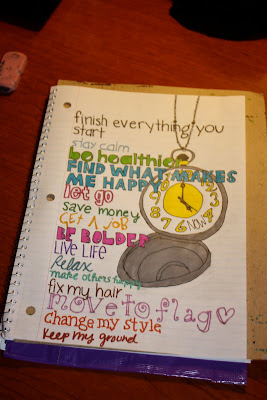 finish everything you
start
stay calm
be healthier
FIND WHAT MAKES
ME HAPPY
let go
save money
GET A JOB
BE BOLDER
LIVE LIFE
Relax
make others happy
fix my hair
move to flag
change my style
Keep my ground
12
1
2
3
4
5
6
7
8
9
NOW